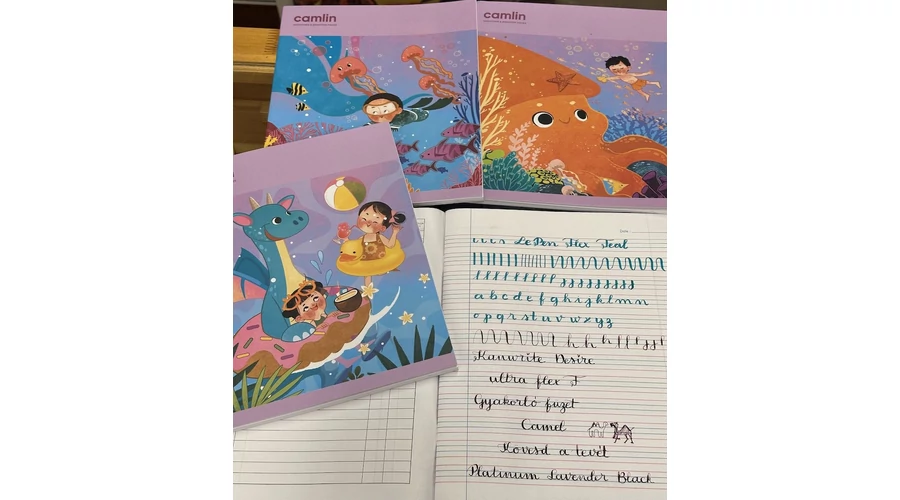 camlin
camlin
lin
LePen Flex Teal
a b c d e f g h i j k l m n
o p q r s t u v w x y z
Kanwrite Desire
ultra flex F
Gyakorló fuzet
Camel
Kovesd a tevét
Platinum Lavender Black